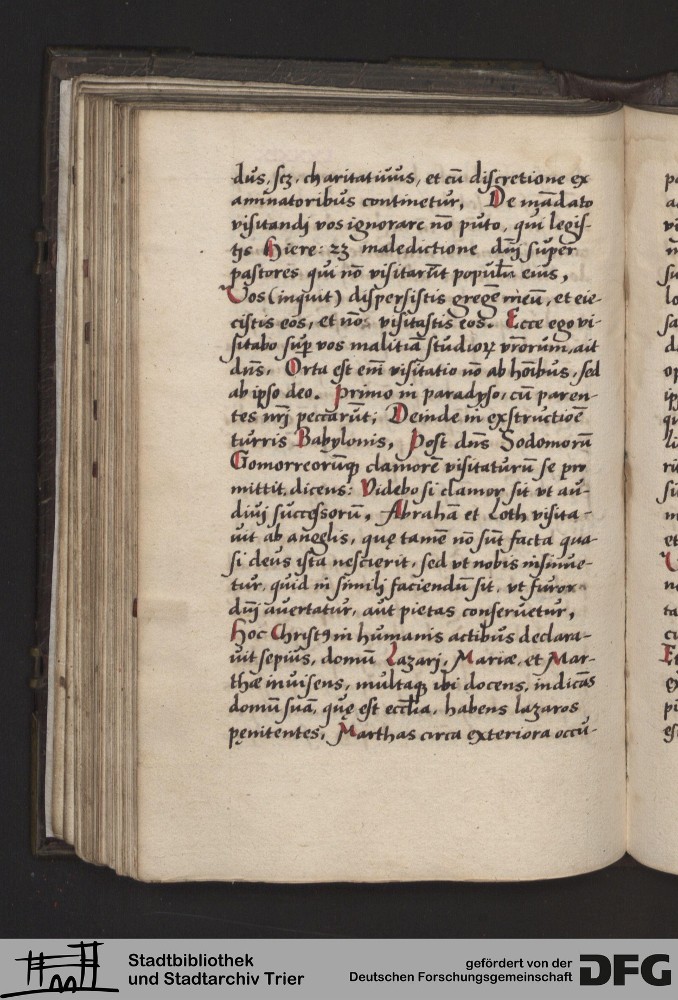 dus, scz, charitatiuus, et cū discretione ex
aminatoribus continetur. De mādato
visitandj vos ignorare nō puto, qui legis-
tis Hiere: 23 maledictione dnj super
pastores qui nō visitarūt populū eius,
Vos (inquit) dispersistis gregē meū, et eie-
cistis eos, et nō visitastis eos. Ecce ego vi-
sitabo sup vos malitiā studioꝝ vrorum, ait
dns. Orta est em visitatio nō ab hoībus, sed
ab ipso deo. Primo in paradyso, cū paren-
tes nrj peccarūt; Deinde in exstructiōe
turris Babylonis, Post dns Sodomorū
Gomorreorūqꝫ clamorē visitaturū se pro
mittit, dicens: Videbo si clamor sit vt au-
diuj successorū, Abrahā et Loth visita-
uit ab angelis, quę tamē nō sūt facta qua-
si deus ista nescierit, sed vt nobis insinue-
tur, quid in similj faciendū sit, vt furor
dnj auertatur, aut pietas conseruetur,
Hoc Christꝯ in humanis actibus declara-
uit sepius, domū Lazarj, Mariæ, et Mar-
thæ inuisens, multaqꝫ ibi docens, indicās
domū suā, quę est eccl̄ia, habens lazaros
pęnitentes, Marthas circa exteriora occu-
Stadtbibliothek
und Stadtarchiv Trier
gefördert von der
Deutschen Forschungsgemeinschaft
DFG